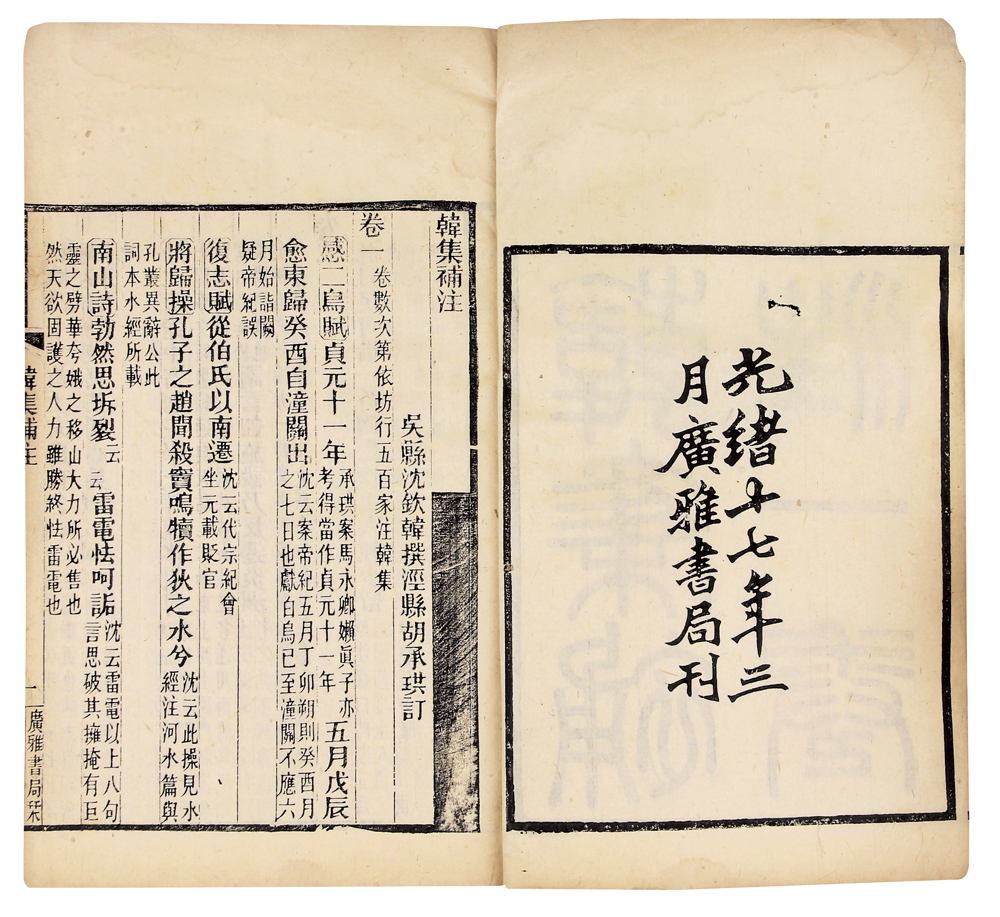 光緒十七年三
月廣雅書局刊
韓集補注
吳縣沈欽韓撰涇縣胡承珙訂
卷一 卷數次第依坊行五百家注韓集
感二鳥賦貞元十一年 承珙案馬永卿嬾眞子亦
考得當作貞元十一年 五月戊辰
愈東歸癸酉自潼關出 沈云案帝紀五月丁卯朔則癸酉月
之七日也獻白烏已至潼關不應六
月始詣闕
疑帝紀誤
復志賦從伯氏以南遷 沈云代宗紀會
坐元載貶官
將歸操孔子之趙聞殺竇鳴犢作狄之水兮 沈云此操見水
經注河水篇與
孔叢異辭公此
詞本水經所載
南山詩勃然思坼裂云云雷電怯呵詬 沈云雷電以上八句
言思破其擁掩有巨
靈之劈華夸娥之移山大力所必售也
然天欲固護之人力雖勝終怯雷電也
韓集補注
一
廣雅書局栞